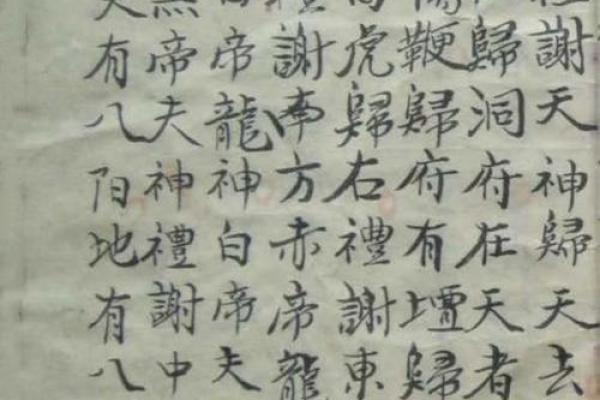 謝天神歸天去
歸洞府在天者
鞭歸府有壇歸
虎歸右禮謝東
禮謝南方赤帝龍
帝龍神白帝夫
黑帝夫神禮謝中
天有八阳地有八